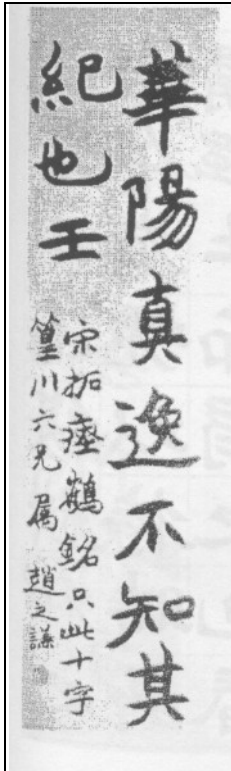 華陽真逸不知其
紀也壬
宋拓瘞鶴銘只此十字
篁川六兄屬 趙之謙